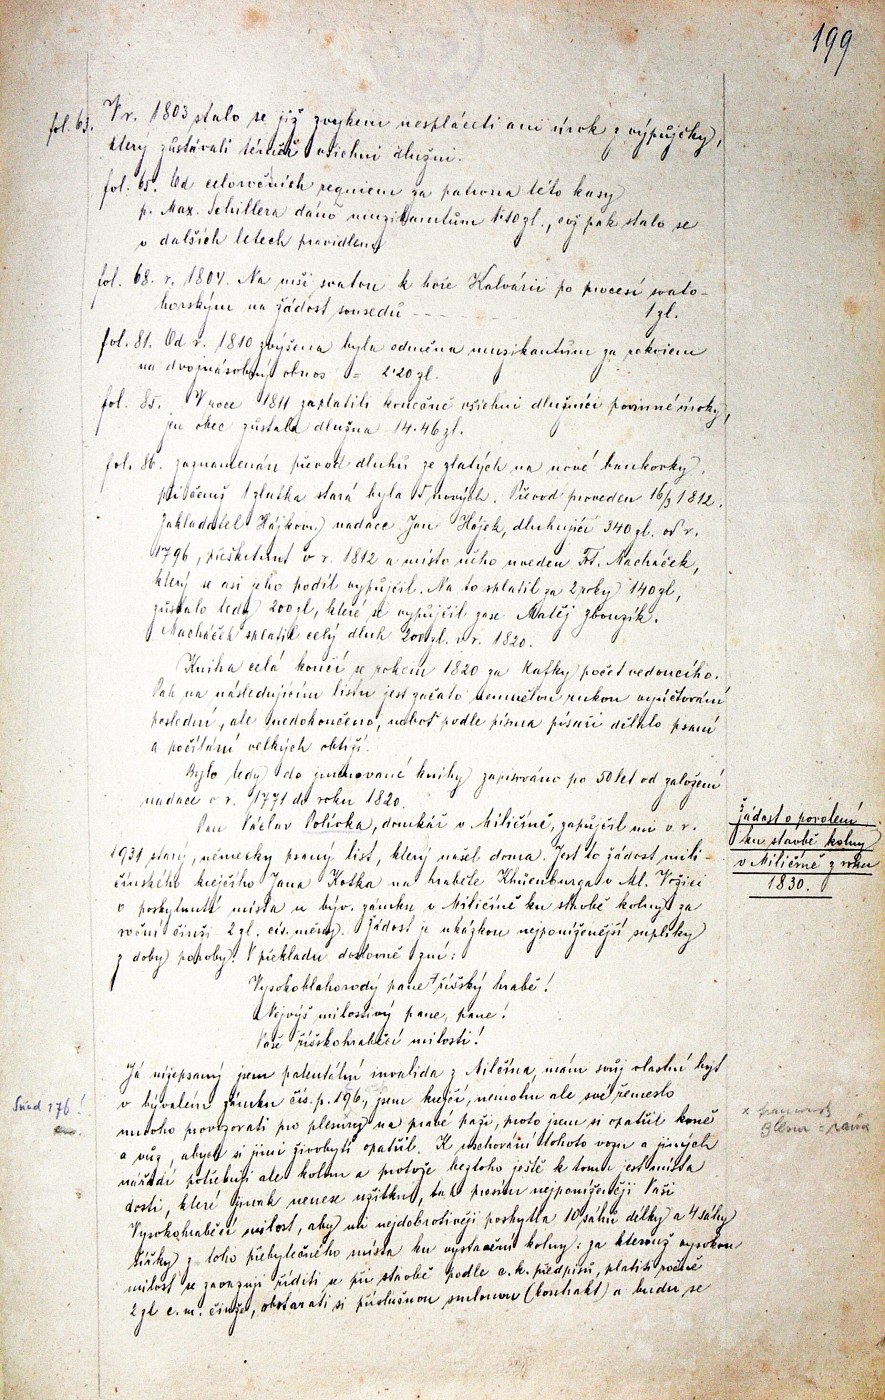 199
fol. 63. V r. 1803 stalo se již zvykem nespláceti ani úrok z výpůjčky,
který zůstávali téměř všichni dlužni.
fol. 65. Od celoročních requiem za patrona této kasy
p. Max. Schillera dáno muzikantům 1·10 zl., což pak stalo se
v dalších letech pravidlem.
fol. 68. r. 1804. Na mši svatou k hoře Kalvárii po procesí svato-
horském na žádost sousedů - - - - 1 zl.
fol. 81. Od r. 1810 zvýšena byla odměna muzikantům za rekviem
na dvojnásobný obnos = 2·20 zl.
fol. 85. V roce 1811 zaplatili konečně všichni dlužníci povinné úroky,
jen obec zůstala dlužna 14·46 zl.
fol. 86. zaznamenán převod dluhů ze zlatých na nové bankovky,
při čemž 1 zlatka stará byla 5 nových. Převod proveden 16/3 1812.
Zakladatel Hájkovy nadace Jan Hájek, dluhující 340 zl. od r.
1796, přeškrtnut v r. 1812 a místo něho uveden Fr. Macháček,
který se asi jeho podíl vypůjčil. Na to splatil za 2 roky 140 zl,
zůstalo tedy 200 zl, které si vypůjčil zase Matěj Zbouzík.
Macháček splatil celý dluh 200 zl. v r. 1820.
Kniha celá končí se rokem 1820 za Kafky početvedoucího.
Pak na následujícím listu jest začato neumělou rukou vyúčtování
poslední, ale nedokončeno, neboť podle písma písaři dělalo psaní
a počítání velkých obtíží.
Bylo tedy do jmenované knihy zapisováno po 50 let od založení
nadace v r. 1771 do roku 1820.
Pan Václav Polívka, domkář v Miličíně, zapůjčil mi v r.
1931 starý, německy psaný list, který našel doma. Jest to žádost mili-
čínského krejčího Jana Koška na hraběte Khüenburga v Ml. Vožici
o poskytnutí místa u býv. zámku v Miličíně ku stavbě kolny za
roční činži 2 zl. cís. měny. Žádost je ukázkou nejponíženější supliky
z doby poroby. V překladu doslovně zní:
Žádost o povolení
ku stavbě kolny
v Miličíně z roku
1830.
Vysokoblahorodý pane říšský hrabě!
Nejvýš milostivý pane, pane!
Vaše říšskohraběcí milosti!
Já nížepsaný jsem patentální invalida z Milčína, mám svůj vlastní byt
v bývalém zámku čís. p. 196, jsem krejčí, nemohu ale své řemeslo
mnoho provozovati pro plesnivý na pravé paži, proto jsem si opatřil koně
a vůz, abych si jimi živobytí opatřil. K uschování tohoto vozu a jiných
nářadí potřebuji ale kolnu a protože beztoho ještě k tomu jest místa
dosti, které jinak nenese užitku, tak prosím nejponíženěji Vaši
Vysokohraběcí milost, aby mi nejdobrotivěji poskytla 10 sáhů délky a 4 sáhy
šířky z toho přebytečného místa ku vystavění kolny: za kterouž vysokou
milost se zavazuji říditi se při stavbě podle c. k. předpisů, platiti počtně
2 zl c. m. činže, obstarati si příslušnou smlouvu (kontrakt) a budu se
176!
= rána